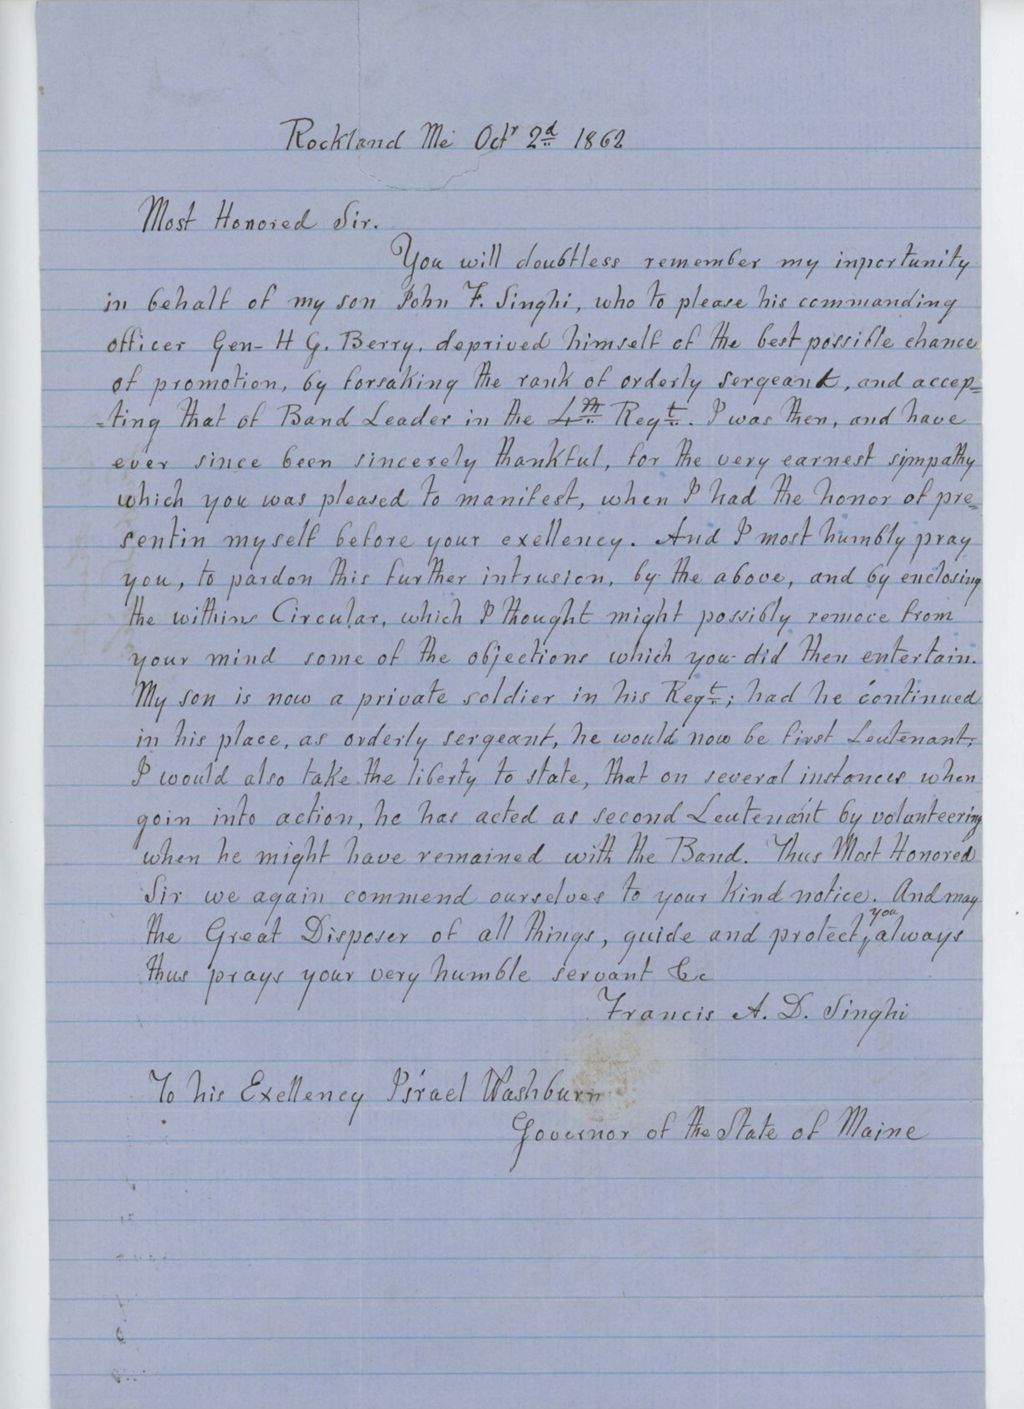 Rockland Me Octr 2d 1862
Most Honored Sir.
You will doubtless remember my inportunity
in behalf of my son John F. Singhi, who to please his commanding
officer Gen- H G. Berry, deprived himself of the best possible chance
of promotion, by forsaking the rank of orderly sergeant, and accep=
=ting that of Band Leader in the 4th Regt. I was then, and have
ever since been sincerely thankful, for the very earnest sympathy
which you was pleased to manifest, when I had the honor of pre=
sentin myself before your exellency. And I most humbly pray
you, to pardon this further intrusion, by the above, and by enclosing
the within Circular, which I thought might possibly remove from
your mind some of the objections which you did then entertain.
My son is now a private soldier in his Regt; had he continued
in his place, as orderly sergeant, he would now be first Leutenant,
I would also take the liberty to state, that on several instances when
goin into action, he has acted as second Leutenant by volunteering
when he might have remained with the Band. Thus Most Honored
Sir we again commend ourselves to your kind notice. And may
the Great Disposer of all things, guide and protect, you always
thus prays your very humble servant &c
Francis A. D. Singhi
To his Exellency Israel Washburn
Governor of the State of Maine